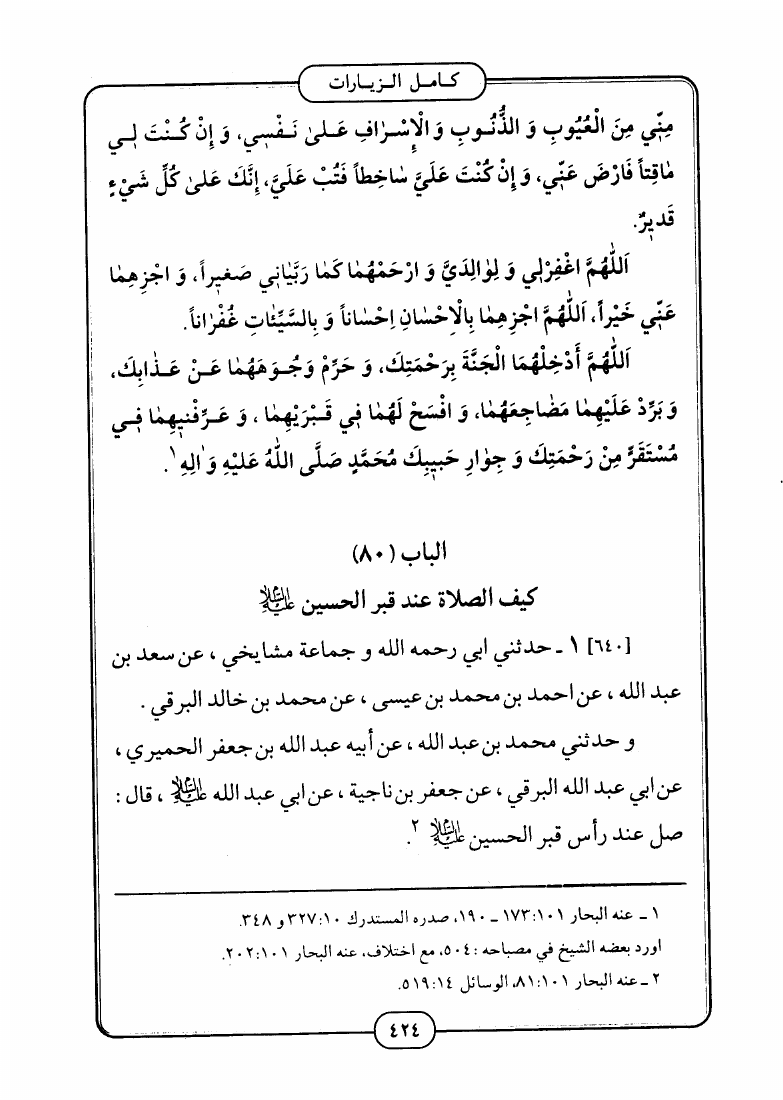 كامل الزيارات
مِنّي مِنَ الْعُيُوبِ وَ الذُّنُوبِ وَ الْإِسْرٰافِ عَلىٰ نَفْسِي، وَ إِنْ كُنْتَ لِي
مٰاقِتاً فَارْضَ عَنّي، وَ إِنْ كُنْتَ عَلَيَّ سٰاخِطاً فَتُبْ عَلَيَّ، إِنَّكَ عَلىٰ كُلِّ شَيْءٍ
قَديرٌ.
اَللّٰهُمَّ اغْفِرْلِي وَ لِوٰالِدَيَّ وَ ارْحَمْهُمٰا كَمٰا رَبَّيٰاني صَغيراً، وَ اجْزِهِمٰا
عَنّي خَيْراً، اَللّٰهُمَّ اجْزِهِمٰا بِالْاِحْسٰانِ اِحْسٰاناً وَ بِالسَّيِّئٰاتِ غُفْرٰاناً.
اَللّٰهُمَّ أَدْخِلْهُمَا الْجَنَّةَ بِرَحْمَتِكَ، وَ حَرِّمْ وُجُوهَهُمٰا عَنْ عَذٰابِكَ،
وَ بَرِّدْ عَلَيْهِمٰا مَضٰاجِعَهُمٰا، وَ افْسَحْ لَهُمٰا فِي قَبْرَيْهِمٰا ، وَ عَرِّفْنيهِمٰا فِي
مُسْتَقَرٍّ مِنْ رَحْمَتِكَ وَ جِوٰارِ حَبيبِكَ مُحَمَّدٍ صَلَّى اللّٰهُ عَلَيْهِ وَ اٰلِهِ ١.
الباب (٨٠)
كيف الصلاة عند قبر الحسين عليه السلام
[٦٤٠] ١ ـ حدثني ابي رحمه الله و جماعة مشايخي ، عن سعد بن
عبد الله ، عن احمد بن محمد بن عيسى ، عن محمد بن خالد البرقي .
و حدثني محمد بن عبد الله ، عن أبيه عبد الله بن جعفر الحميري ،
عن ابي عبد الله البرقي ، عن جعفر بن ناجية ، عن ابي عبد الله عليه السلام ، قال :
صل عند رأس قبر الحسين عليه السلام ٢.
١ ـ عنه البحار ١٠١:١٧٣ ـ ١٩٠، صدره المستدرك ١٠:٣٢٧ و ٣٤٨.
اورد بعضه الشيخ في مصباحه :٥٠٤، مع اختلاف، عنه البحار ١٠١:٢٠٢.
٢ ـ عنه البحار ١٠١:٨١، الوسائل ١٤:٥١٩.
٤٢٤